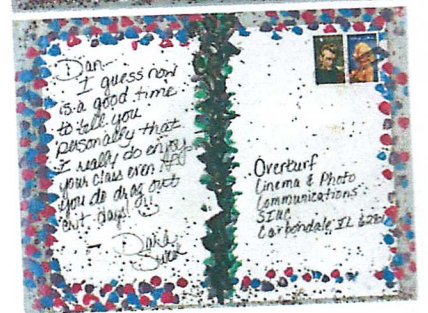 Dan-
I guess now
is a good time
to tell you
personally that
I really do enjoy
your class even tho
you do drag out
crit days!!
- Dara
Overturf
Cinema & Photo
Communications
SIUC
Carbondale, IL 62901